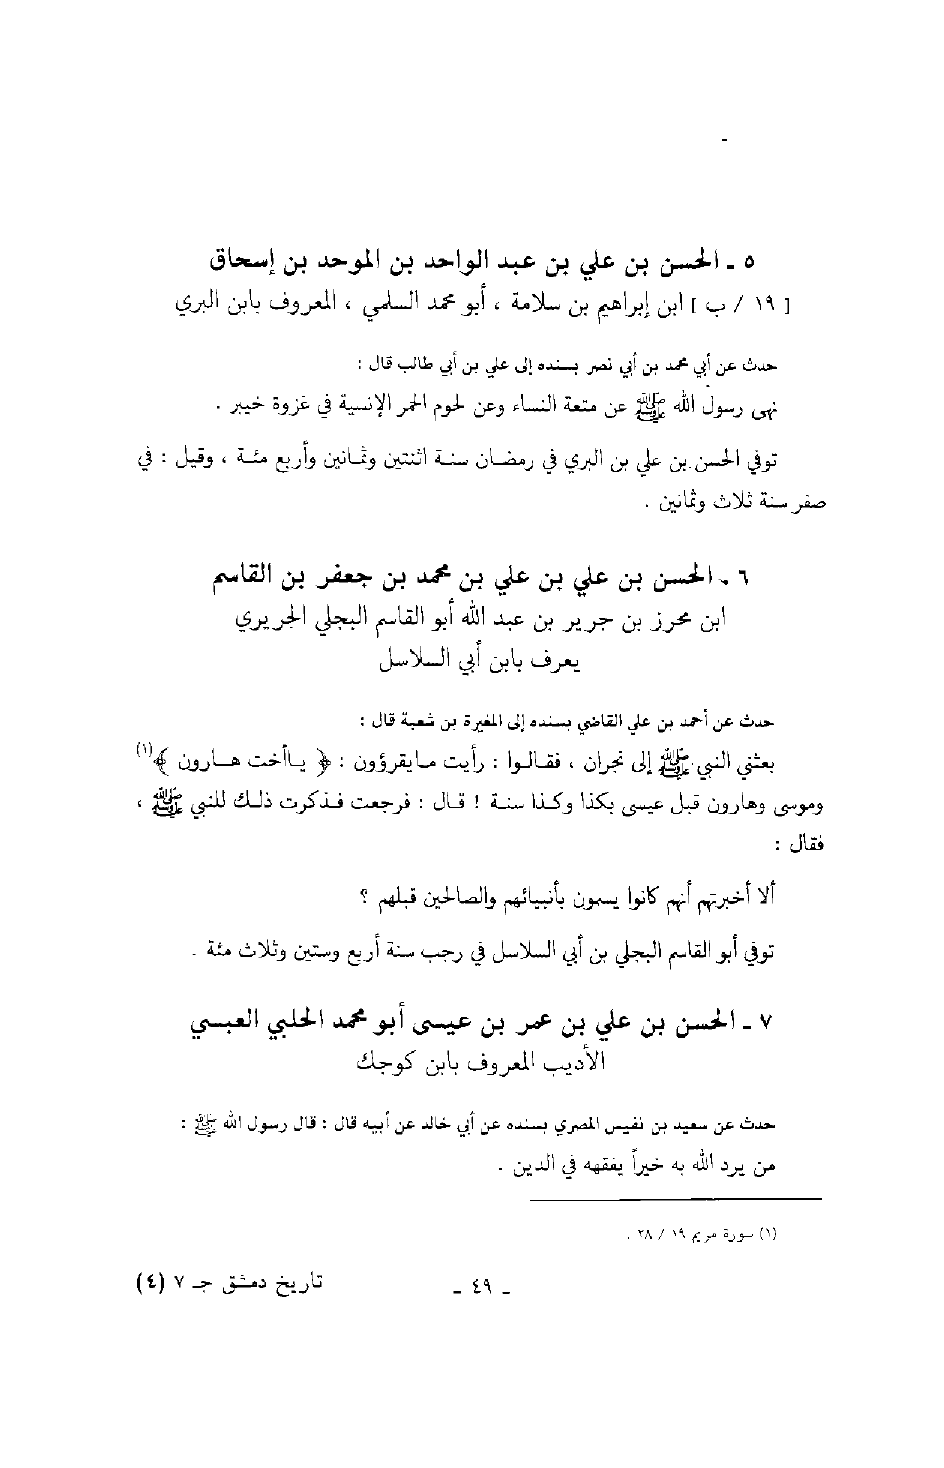 ٥ ـ الحسن بن علي بن عبد الواحد بن الموحد بن إسحاق
[ ١٩ / ب ] ابن إبراهيم بن سلامة ، أبو محمد السلمي ، المعروف بابن البري
حدث عن أبي محمد بن أبي نصر بسنده إلى علي بن أبي طالب قال :
نهى رسول الله ﷺ عن متعة النساء وعن لحوم الحمر الإنسية في غزوة خيبر .
توفي الحسن بن علي بن البري في رمضان سنة اثنتين وثمانين وأربع مئة ، وقيل : في
صفر سنة ثلاث وثمانين .
٦ ـ الحسن بن علي بن علي بن محمد بن جعفر بن القاسم
ابن محرز بن جرير بن عبد الله أبو القاسم البجلي الجريري
يعرف بابن أبي السلاسل
حدث عن أحمد بن علي القاضي بسنده إلى المغيرة بن شعبة قال :
بعثني النبي ﷺ إلى نجران ، فقالوا : رأيت مايقرؤون : ﴿ ياأخت هارون ﴾(١)
وموسى وهارون قبل عيسى بكذا وكذا سنة ! قال : فرجعت فذكرت ذلك للنبي ﷺ ،
فقال :
ألا أخبرتهم أنهم كانوا يسمون بأنبيائهم والصالحين قبلهم ؟
توفي أبو القاسم البجلي بن أبي السلاسل في رجب سنة أربع وستين وثلاث مئة .
٧ ـ الحسن بن علي بن عمر بن عيسى أبو محمد الحلبي العبسي
الأديب المعروف بابن كوجك
حدث عن سعيد بن نفيس المصري بسنده عن أبي خالد عن أبيه قال : قال رسول الله ﷺ :
من يرد الله به خيراً يفقهه في الدين .
(١) سورة مريم ١٩ / ٢٨ .
ـ ٤٩ ـ تاريخ دمشق جـ ٧ (٤)